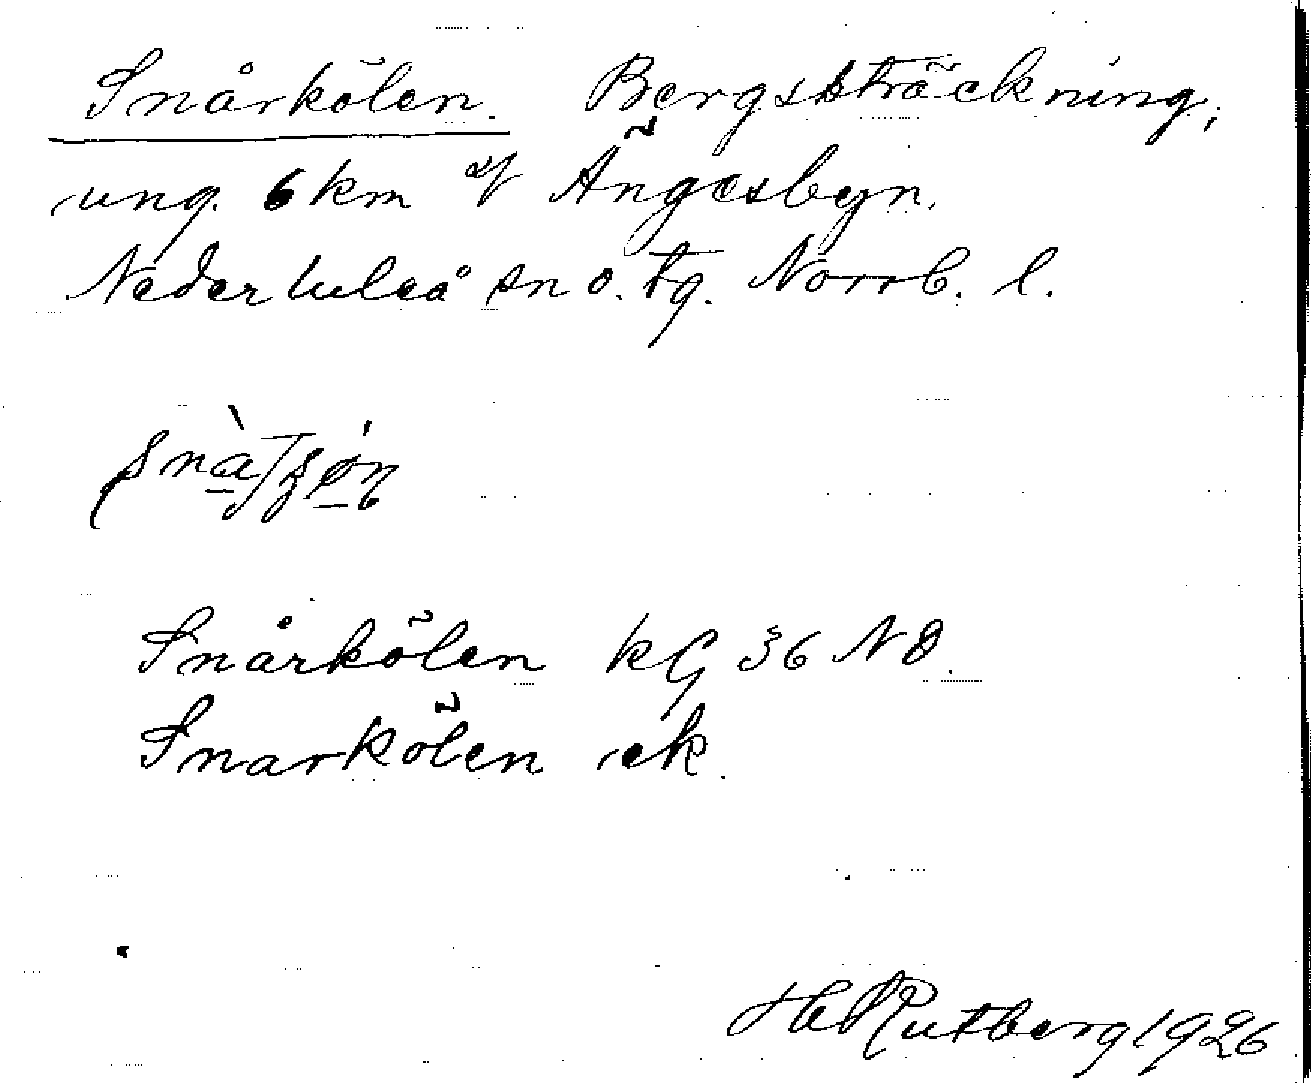 Snårkölen. Bergssträckning,
ung. 6 km Ängesbyn.
Nederluleå sn o. tg. Norrb. l.
Snårkölen kG 36 NO.
Snarkölen ek.
Hd Rutberg 1926